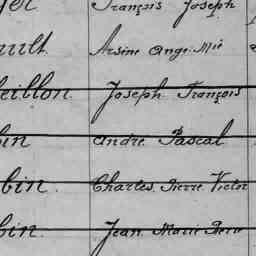 François Joseph
Arsène Ange Mie
eillon Joseph François
bin André Pascal
bin Charles Pierre Victor
bin Jean Marie Pierre